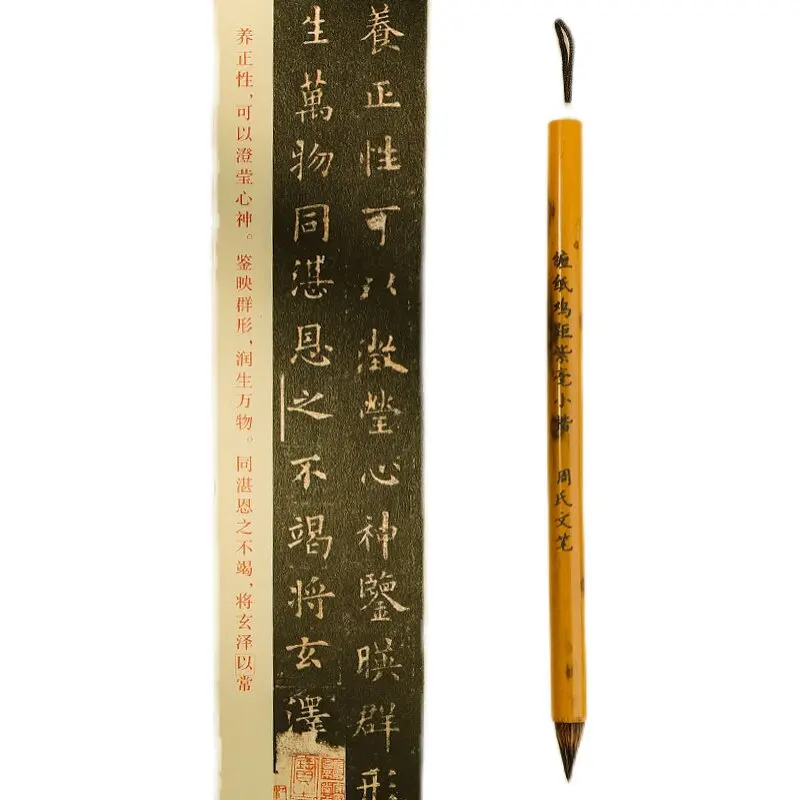 養正性可以澂瑩心神鑒暎群形
生萬物同湛恩之不竭将玄澤
养正性，可以澄莹心神。鉴映群形，润生万物。同湛恩之不竭，将玄泽以常
缠纸鸡距紫毫小楷 周氏文笔